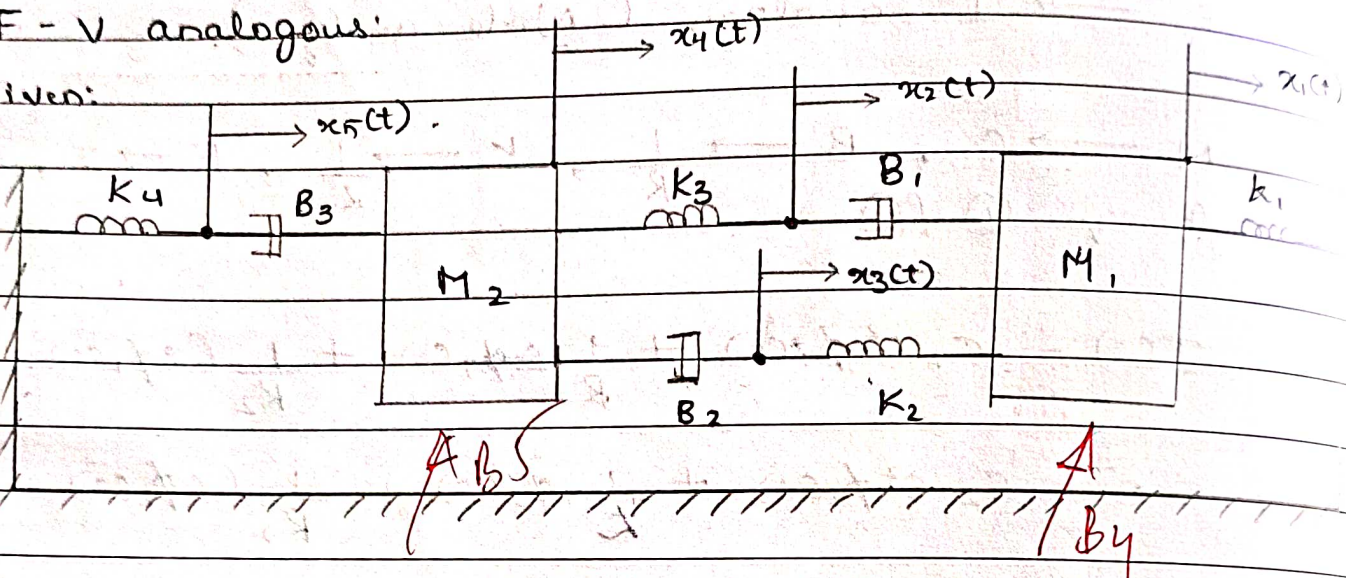 F - V analogous:
iven:
x4(t)
x2(t)
x1(t)
x5(t).
K4
B3
K3
B1
k1
M2
x3(t)
M1
B2
K2
B5
B4